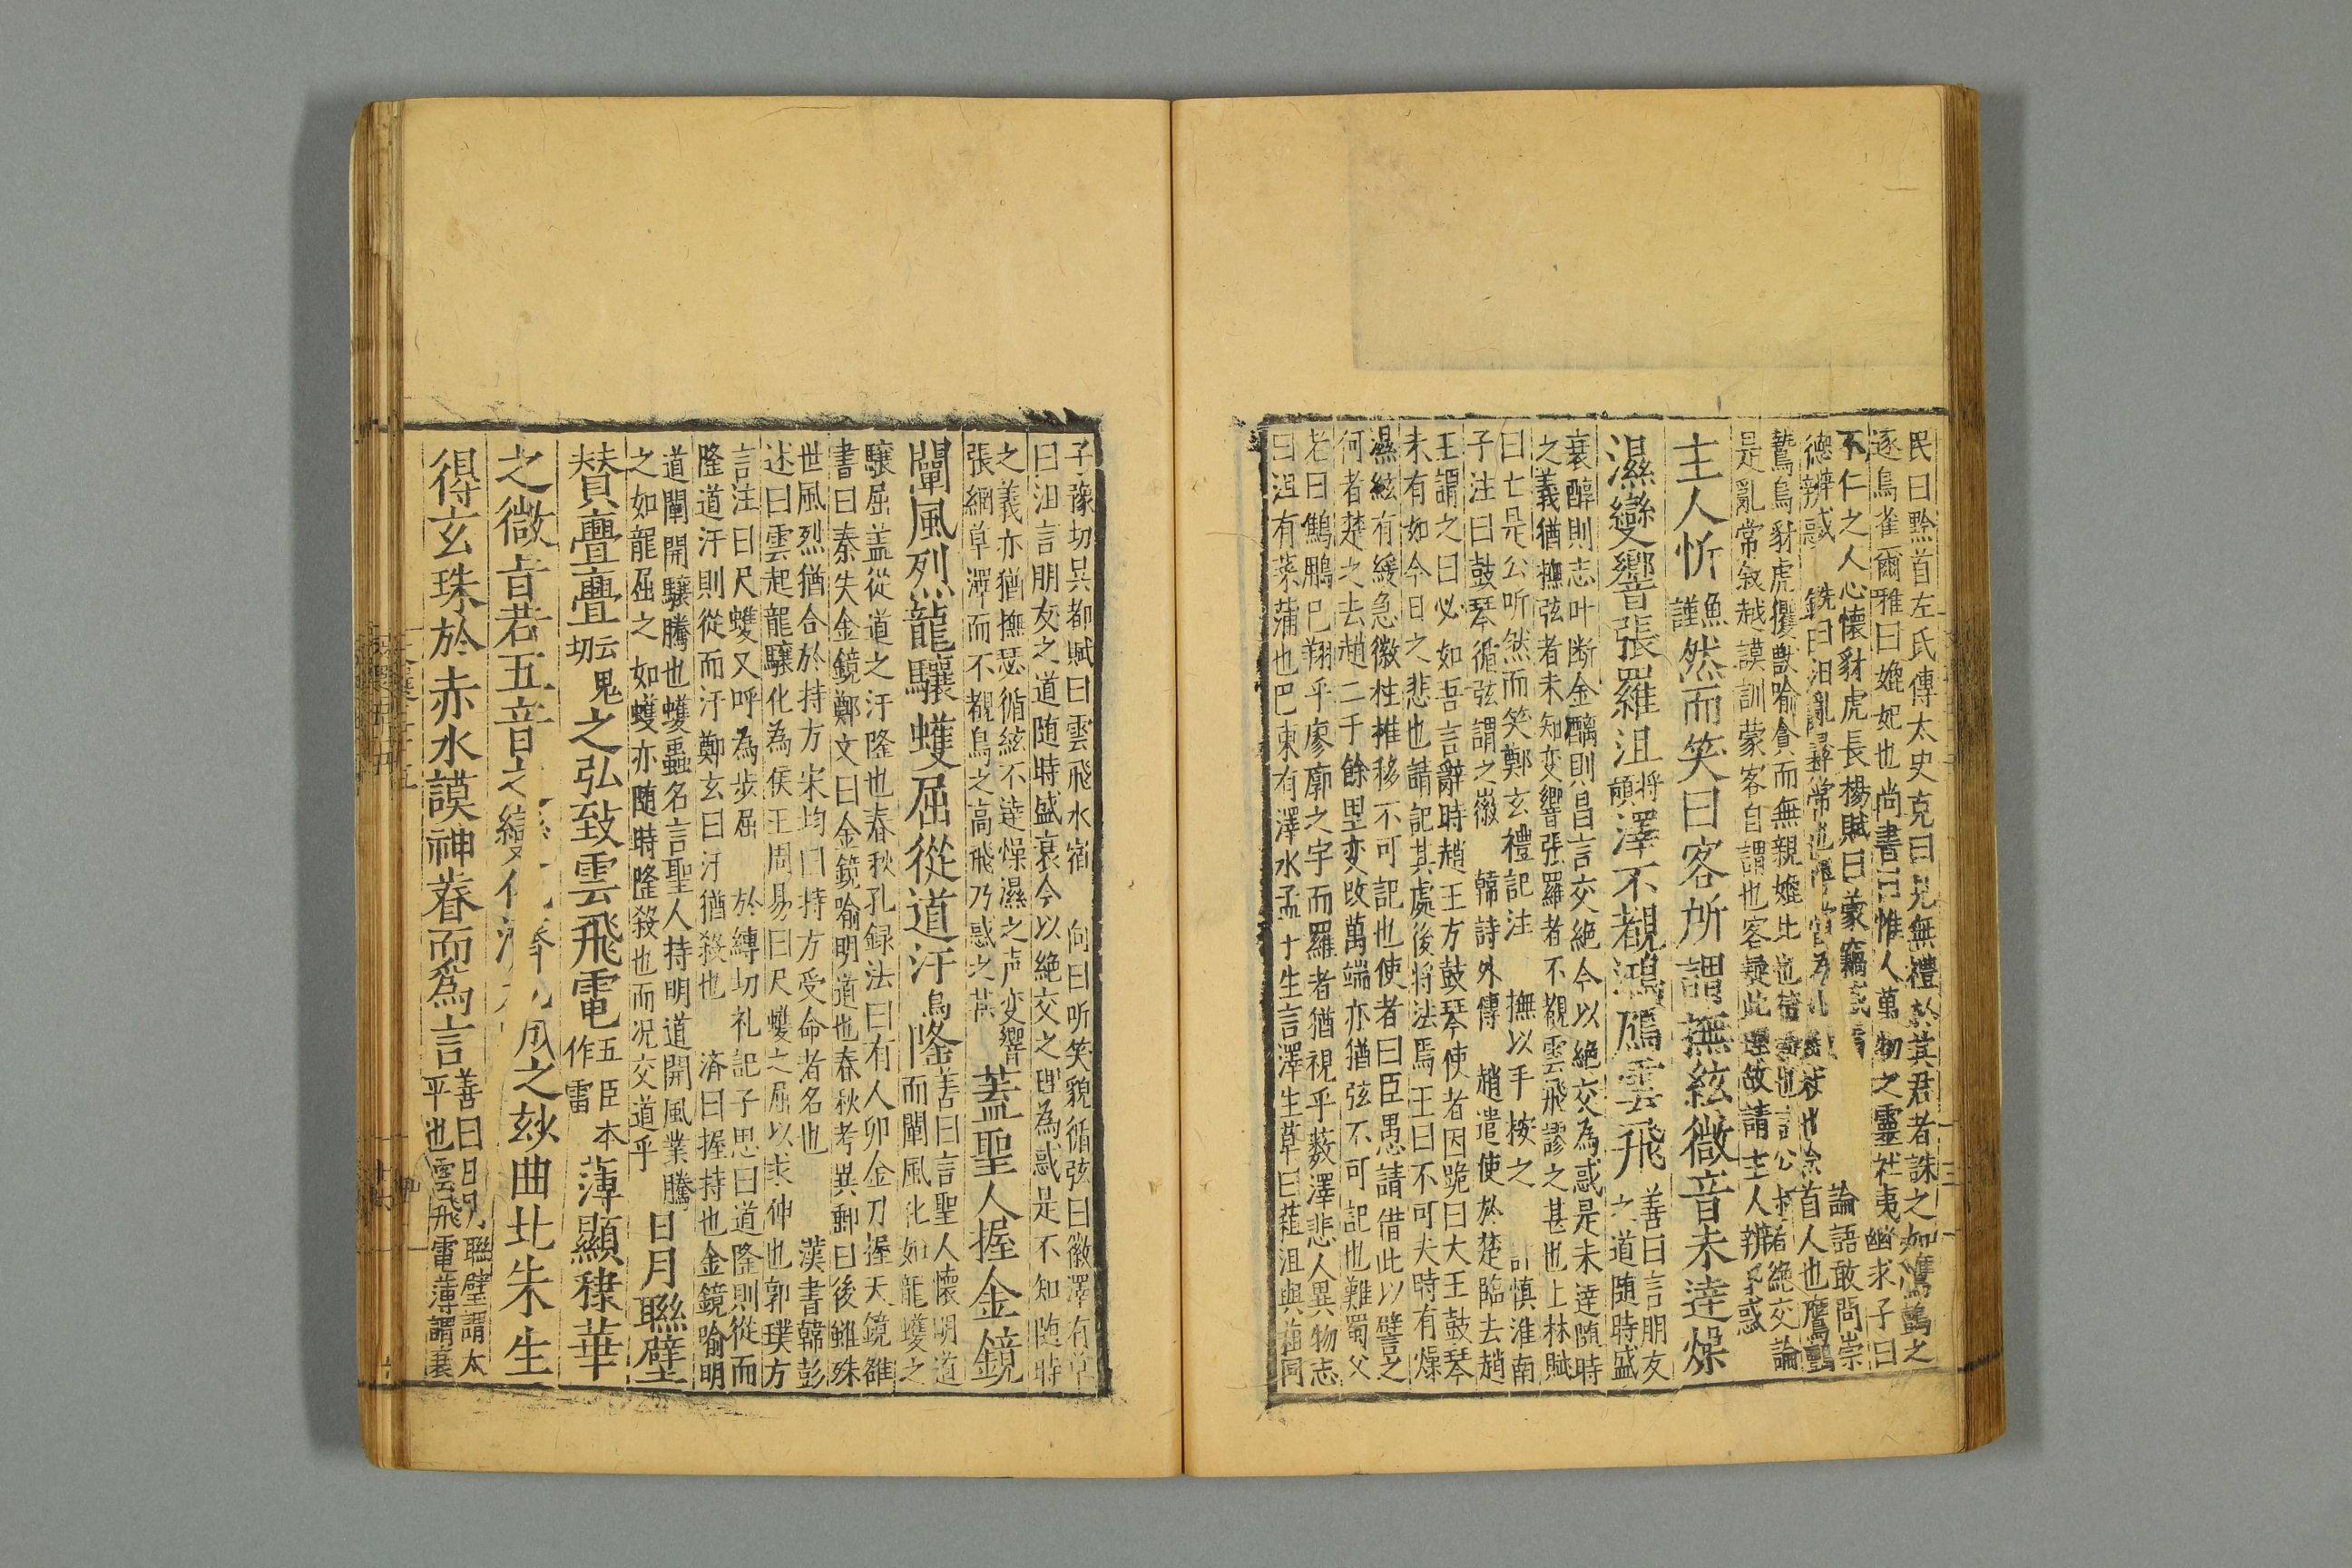 民曰黔首左氏傳太史克曰見無禮於其君者誅之如鷹鸇之
逐鳥雀爾雅曰媲妃也尚書曰惟人萬物之靈社夷幽求子曰
不仁之人心懷豺虎長楊賦曰蒙竊惑焉 論語敢問崇
德辨惑 銑曰汨亂彛常也 首人也鷹鸇
鷙鳥豺虎玃獸喻貪而無親媲比也 絶交論
是亂常叙越謨訓蒙客自謂也客疑此理故請主人辨其惑
主人忻漁謹然而笑曰客所謂撫絃徽音未達燥
濕變響張羅沮將頭澤不覩鴻鴈雲飛善曰言朋友之道随時盛
衰醇則志叶断金醨則昌言交絶今以絶交為惑是未達随時
之義猶撫弦者未知变響張羅者不覩雲飛謬之甚也上林賦
曰亡是公听然而笑鄭玄禮記注 撫以手按之 慎淮南
子注曰鼓琴循弦謂之徽 韓詩外傳 趙遣使於楚臨去趙
王謂之曰必如吾言辭時趙王方鼓琴使者因跪曰大王鼓琴
未有如今日之悲也請記其處後将法焉王曰不可夫時有燥
濕絃有緩急徽柱推移不可記也使者曰臣愚請借此以譬之
何者楚之去趙二千餘里变改萬端亦猶弦不可記也難蜀父
老曰鷦鵬已翔乎廖廓之宇而羅者猶視乎薮澤悲人異物志
曰沮有菜蒲也巴東有澤水孟十生言澤生草曰葅沮與葅同
子豫切吴都賦曰雲飛水宿 向曰听笑貌循弦曰徽澤有草
曰沮言朋友之道随時盛衰今以絶交之理為惑是不知随時
之義亦猶撫瑟循絃不達燥濕之声变響
張網草澤而不覩鳥之高飛乃惑之甚 蓋聖人握金鏡
闡風烈龍驤蠖屈從道汙烏隆善曰言聖人懷明道而闡風化如龍蠖之
驤屈盖從道之汙隆也春秋孔録法曰有人卯金刀握天鏡雒
書曰秦失金鏡鄭玄曰金鏡喻明道也春秋考異郵曰後雖殊
世風烈猶合於持方宋均曰持方受命者名也 漢書韓彭
述曰雲起龍驤化為侯王周易曰尺蠖之屈以求伸也郭璞方
言注曰尺蠖又呼為步屈 於縛切礼記子思曰道隆則從而
隆道汙則從而汙鄭玄曰汙猶殺也 済曰握持也金鏡喻明
道闡開驤騰也蠖蟲名言聖人持明道開風業騰
之如龍屈之如蠖亦随時隆殺也而况交道乎 日月聯璧
賛亹亹鬼云切之弘致雲飛電五臣本作雷薄顯棣華
之微旨若五音之變化 之玅曲此朱生
得玄珠於赤水謨神睿而為言善曰日月聯璧謂太平也雲飛電薄謂衰